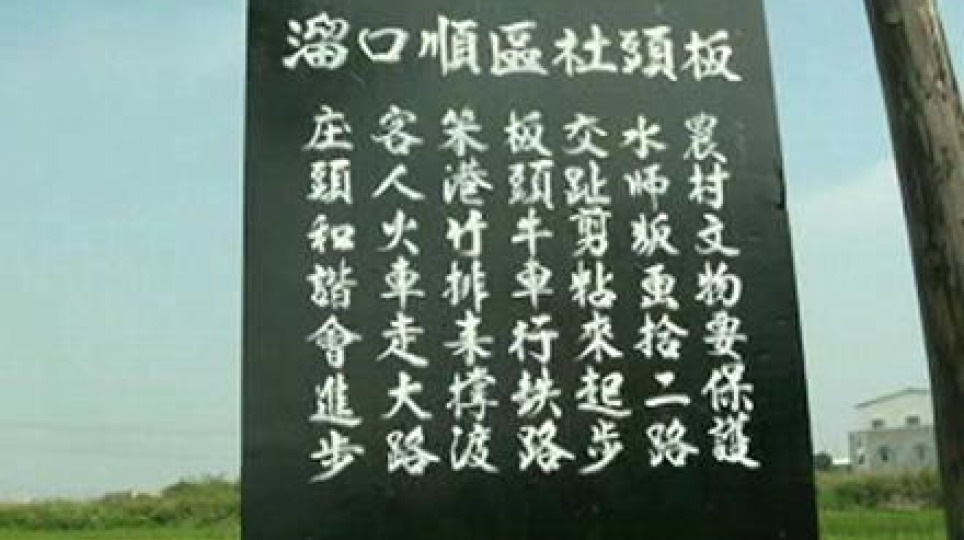 板頭社區順口溜
農村文物要保護
水師販魚拾二路
交趾剪粘來起步
板頭牛車行鉄路
笨港竹排来撑渡
客人火車走大路
庄頭和諧會進步